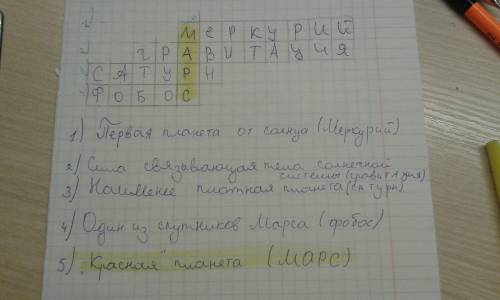 МЕРКУРИЙ
ГРАВИТАЦИЯ
САТУРН
ФОБОС
1) Первая планета от солнца (Меркурий)
2) Сила связывающая тела солнечной
системы (гравитация)
3) Наименее плотная планета (сатурн)
4) Один из спутников Марса (фобос)
5) „Красная" планета (МАРС)